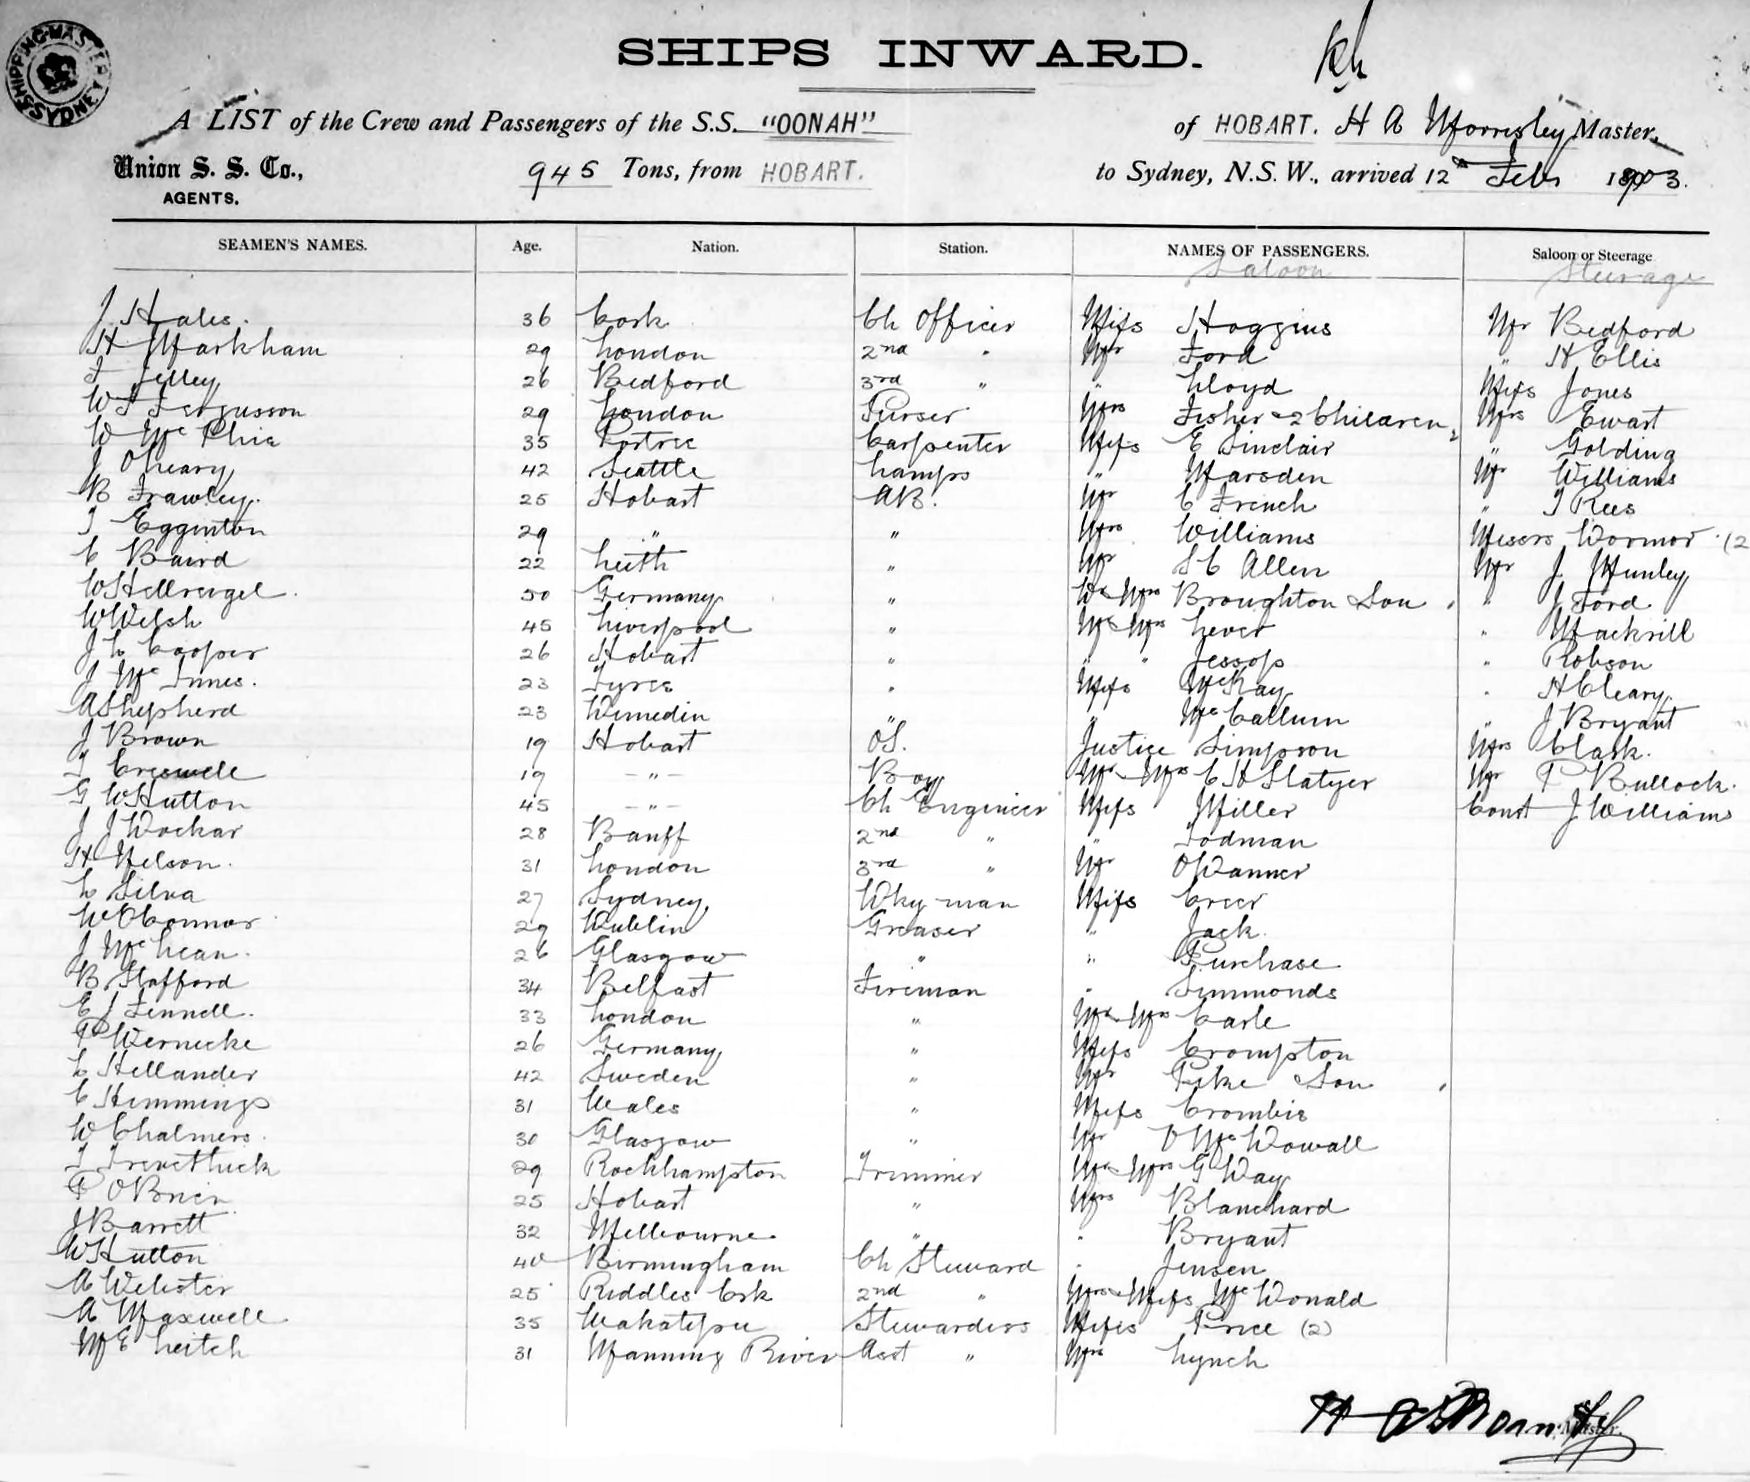 SHIPPING MASTER SYDNEY
SHIPS INWARD.
A LIST of the Crew and Passengers of the S.S. "OONAH" of HOBART. H A Master,
Union S. S. Co., 945 Tons, from HOBART. to Sydney, N.S.W., arrived 12th Feb 1903.
AGENTS.
SEAMEN'S NAMES. Age. Nation. Station. NAMES OF PASSENGERS. Saloon or Steerage
Saloon Steerage
J Hales. 36 Cork Ch Officer Miss Hoggins Mr Bedford
H Markham 29 London 2nd " Mr Ford " H Ellis
F Jelley 26 Bedford 3rd " " Lloyd Miss Jones
W F Fergusson 29 London Purser Mrs Fisher & 2 Children Mrs Ewart
W McPhie 35 Portree Carpenter Miss E Sinclair " Golding
J OLeary 42 Seattle Lamps " Marsden Mr Williams
B Frawley. 25 Hobart AB. Mr C French " T Rees
T Egginton 29 " " Mrs Williams Messrs Wormor (2
C Baird 22 Leith " Mr S C Allen Mr J Hunley
W Hellreigel. 50 Germany " Broughton & Son " J Ford
W Welsh 45 Liverpool " Mr & Mrs Lever " Mackrill
J L Cooper 26 Hobart " " " Jessop " Robson
J McInnes. 23 " Miss McKay " H Cleary.
A Shepherd 23 " " McCallum " J Bryant
J Brown 19 Hobart OS. Justice Simpson Mrs Clark.
T Creswell 19 " Boy Mr & Mrs C H Slatyer Mr P Bullock.
G W Hutton 45 " Ch Engineer Miss Miller Const J Williams
J J Dockar 28 Banff 2nd " " Todman
H Nelson. 31 London 3rd " Mr
L Silva 27 Sydney. Dky man Miss Creer
W OConnor 29 Dublin Greaser " Jack.
J McLean. 26 Glasgow " " Purchase
B Stafford 34 Belfast Fireman " Simmonds
E J Fennell. 33 London " Mr & Mrs Carle
P Wernecke 26 Germany " Miss Crompton
L Hellander 42 Sweden " Mr Pike & Son
C Hemmings 31 Wales " Miss Crombie
W Chalmers. 30 Glasgow " Mr McDowall
T Trevethick 29 Rockhampton Trimmer Mr & Mrs G Way
P OBrien 25 Hobart " Mrs Blanchard
J Barrett 32 Melbourne " " Bryant
W Hutton 40 Birmingham Ch Steward " Jensen
A Webster 25 Riddles Crk 2nd " Mrs & Miss McDonald
A Maxwell 35 Wakatipu Stewardess Misses Price (2)
M E Leitch 31 Manning River Asst " Mrs Lynch
Master.